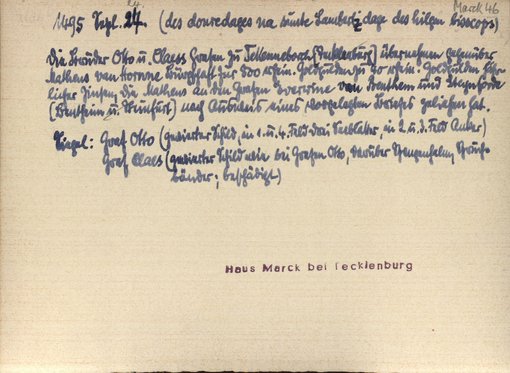 Marck 46
24.
1495 Sept. 24. (des donredages na sunte Lambertz dage des hilgen bisscops)
Die Brüder Otto u. Claess Grafen zu Tekeneborch (Tecklenburg) übernehmen gegenüber
Mathens van Horne Bürgschaft für 800 rhein. Goldgulden zu 40 rhein. Goldgulden jähr-
licher Zinsen die Mathens an den Grafen Everwine von Benthem und Steynforde
(Bentheim u. Steinfurt) nach Ausweis eines vorgelegten Briefes geliehen hat.
Siegel: Graf Otto (quadrierter Schild, in 1. u. 4. Feld drei Seeblätter, in 2. u. 3. Feld Anker)
Graf Claes (quadrierter Schild wie bei Grafen Otto, darüber Spangenhelm, Spruch-
bänder; beschädigt)
Haus Marck bei Tecklenburg